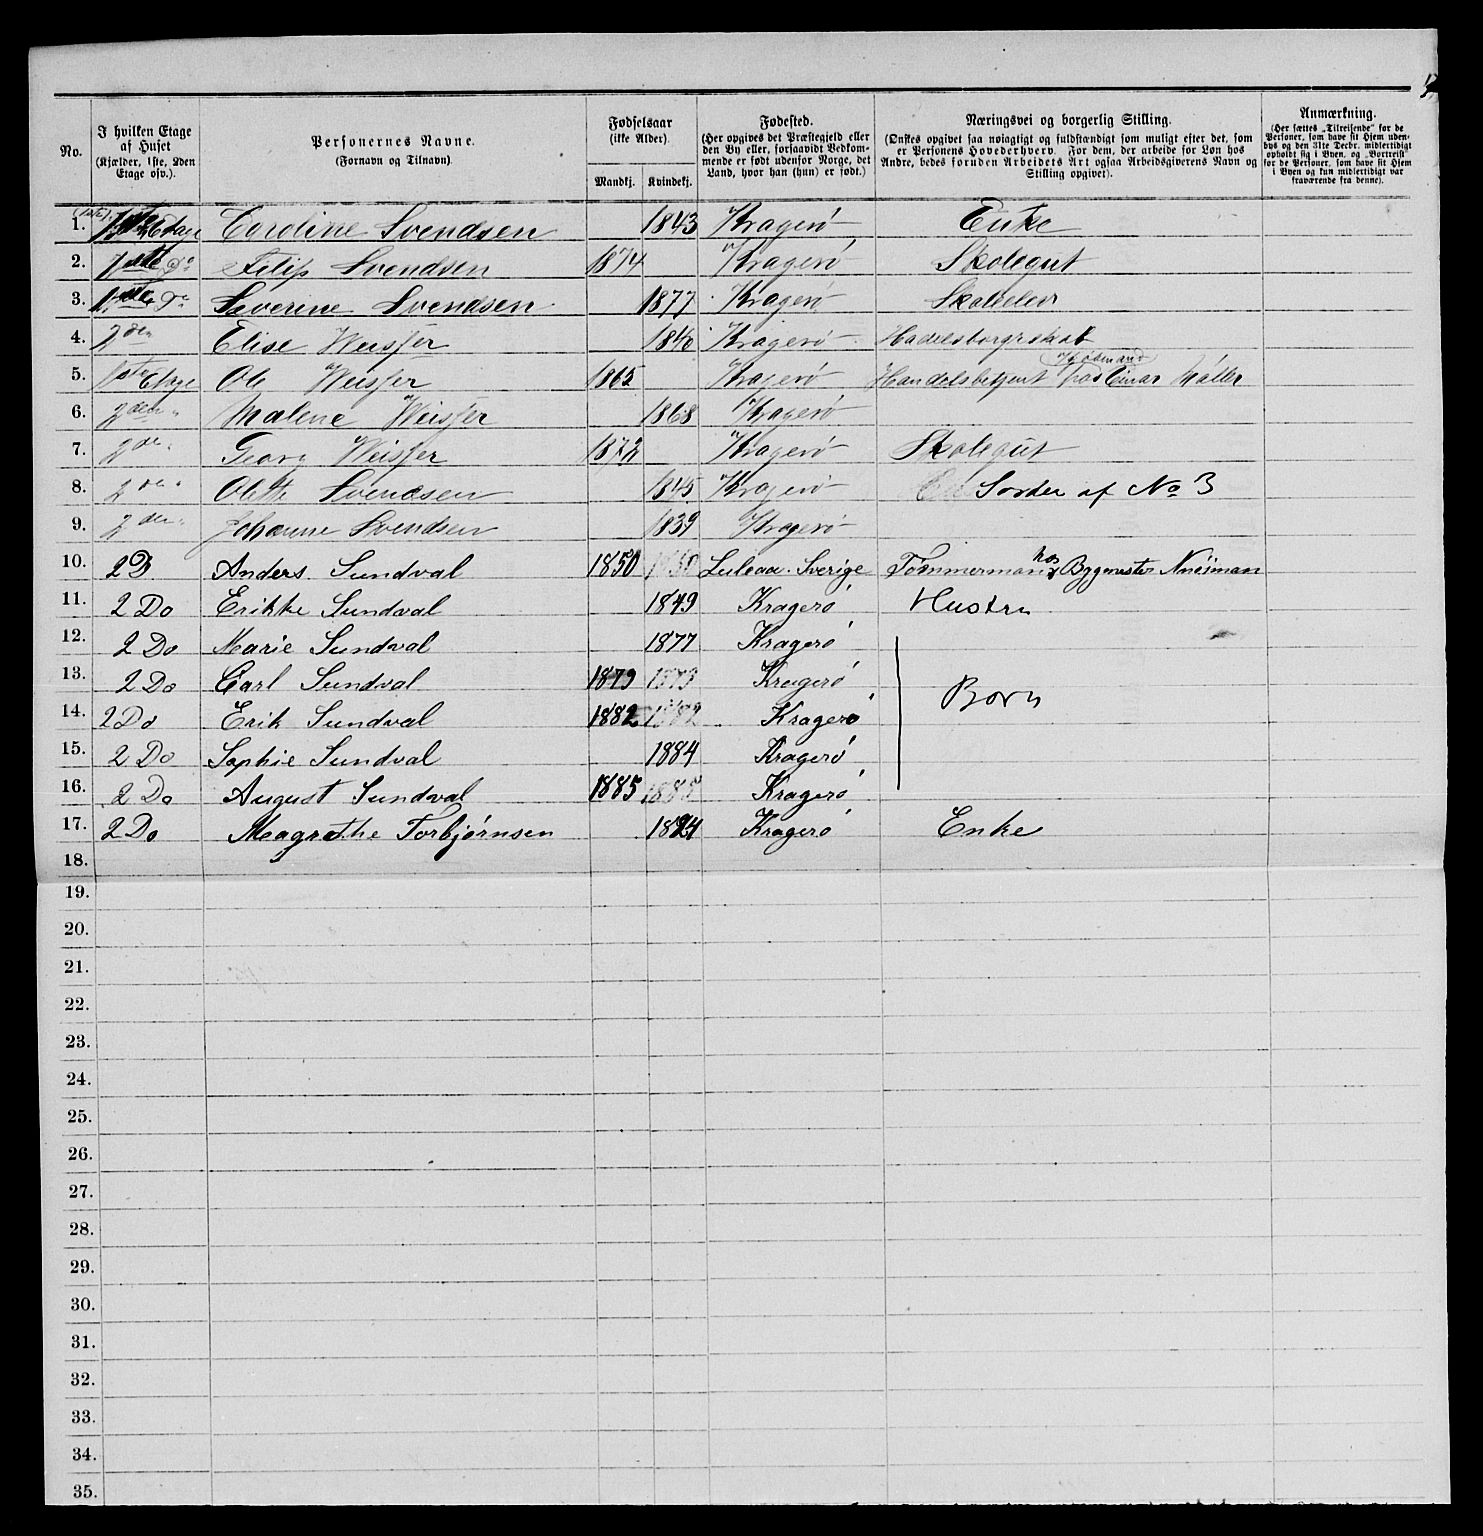 No.
I hvilken Etage af Huset (Kjælder, 1ste, 2den Etage osv.).
Personernes Navne. (Fornavn og Tilnavn)
Fødselsaar (ikke Alder).
Mandkj. Kvindekj.
Fødested. (Her opgives det Præstegjeld eller den By eller, forsaavidt Vedkommende er født udenfor Norge, det Land, hvor han (hun) er født.)
Næringsvei og borgerlig Stilling. (Ønskes opgivet saa nøiagtigt og fuldstændigt som muligt efter det, som er Personens Hovederhverv. For dem, der arbeide for Løn hos Andre, bedes foruden Arbeidets Art ogsaa Arbeidsgiverens Navn og Stilling opgivet).
Anmærkning. (Her sættes „Tilreisende" for de Personer, som have sit Hjem udenbys og den 31te Decbr. midlertidigt opholdt sig i Byen, og „Bortreist" for de Personer, som have sit Hjem i Byen og kun midlertidigt var fraværende fra denne).
1. 1ste Etage Caroline Svendsen 1843 Kragerö Enke
2. 1ste Do Filip Svendsen 1874 Kragerö Skolegut
3. 1ste Do Severine Svendsen 1877 Kragerö Skoleelev
4. 2den Elise Weisjer 1840 Kragerö Hadelsborgerskab
5. 1ste Etage Ole Weisjer 1865 Kragerö Handelsbetjent hos Einar Møller
6. 2den Malene Weisjer 1868 Kragerö
7. 2den Georg Weisjer 1872 Kragerö Skolegut
8. 2den Olette Svendsen 1845 Kragerö Soster af No 3
9. 2den Johanne Svendsen 1839 Kragerö
10. 2 D Anders Sundval 1850 1850 Luleaa Sverige Tömmermand hos Bygmester
11. 2 Do Erikke Sundval 1849 Kragerö Hustru
12. 2 Do Marie Sundval 1877 Kragerö
13. 2 Do Carl Sundval 1879 1879 Kragerö Born
14. 2 Do Erik Sundval 1882 1882 Kragerö
15. 2 Do Sophie Sundval 1884 Kragerö
16. 2 Do August Sundval 1885 1885 Kragerö
17. 2 Do Magrethe Torbjørnsen 1824 Kragerö Enke
18.
19.
20.
21.
22.
23.
24.
25.
26.
27.
28.
29.
30.
31.
32.
33.
34.
35.